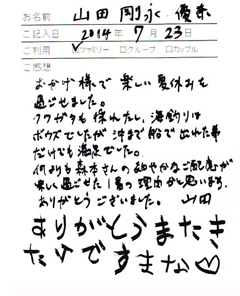 お名前 山田 剛永・優希
ご記入日 2014年 7月 23日
ご利用 ☑ファミリー □グループ □カップル
ご感想
おかげ様で楽しい夏休みを
過ごせました。
クワガタも採れたし、海釣りは
ボウズでしたが沖まで船で出れた事
だけでも満足でした。
何よりも森本さんの細やかなご配慮が
楽しく過ごせた1番の理由かと思います。
ありがとうございました。 山田
ありがとうまたき
たいですまな♡